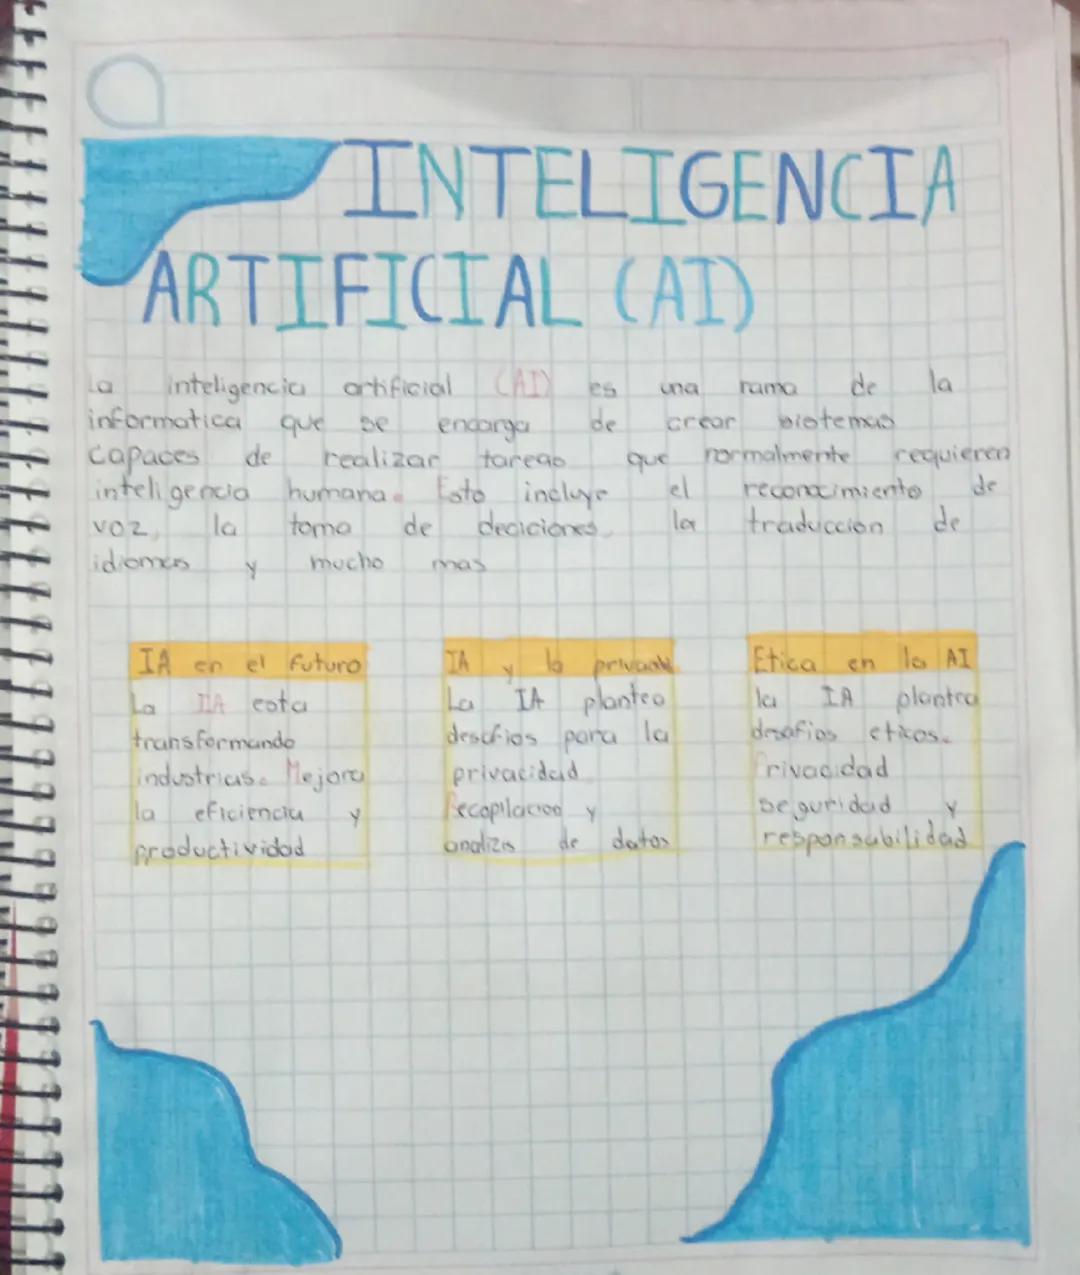 INTELIGENCIA
ARTIFICIAL (AI)
La inteligencia artificial (AI) es una rama de la
informatica que se encarga de crear sistemas
capaces de realizar tareas que normalmente requieren
inteligencia humana. Esto incluye el reconocimiento de
voz, la toma de deciciones, la traduccion de
idiomas y mucho mas
IA en el futuro
La IA esta
transformando
industrias. Mejora
la eficiencia y
productividad
IA y la privacidad
La IA plantea
desafios para la
privacidad
Recopilacion y
analizis de datos
Etica en la AI
la IA plantea
desafios eticos.
Privacidad
seguridad y
responsabilidad